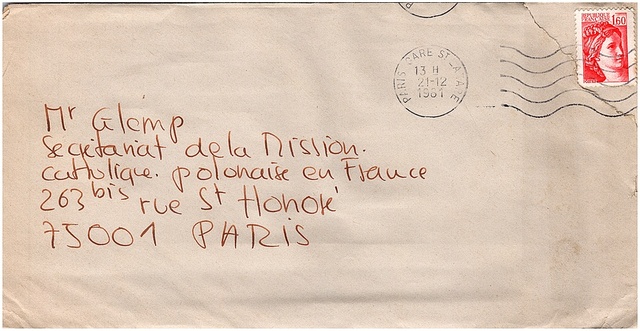 REPUBLIQUE FRANCAISE
1,60
PARIS GARE ST-LAZARE
13 H
21-12
1981
Mr Glemp
Secrétariat de la Mission.
catholique. polonaise en France
263 bis rue St Honoré
75001 PARIS